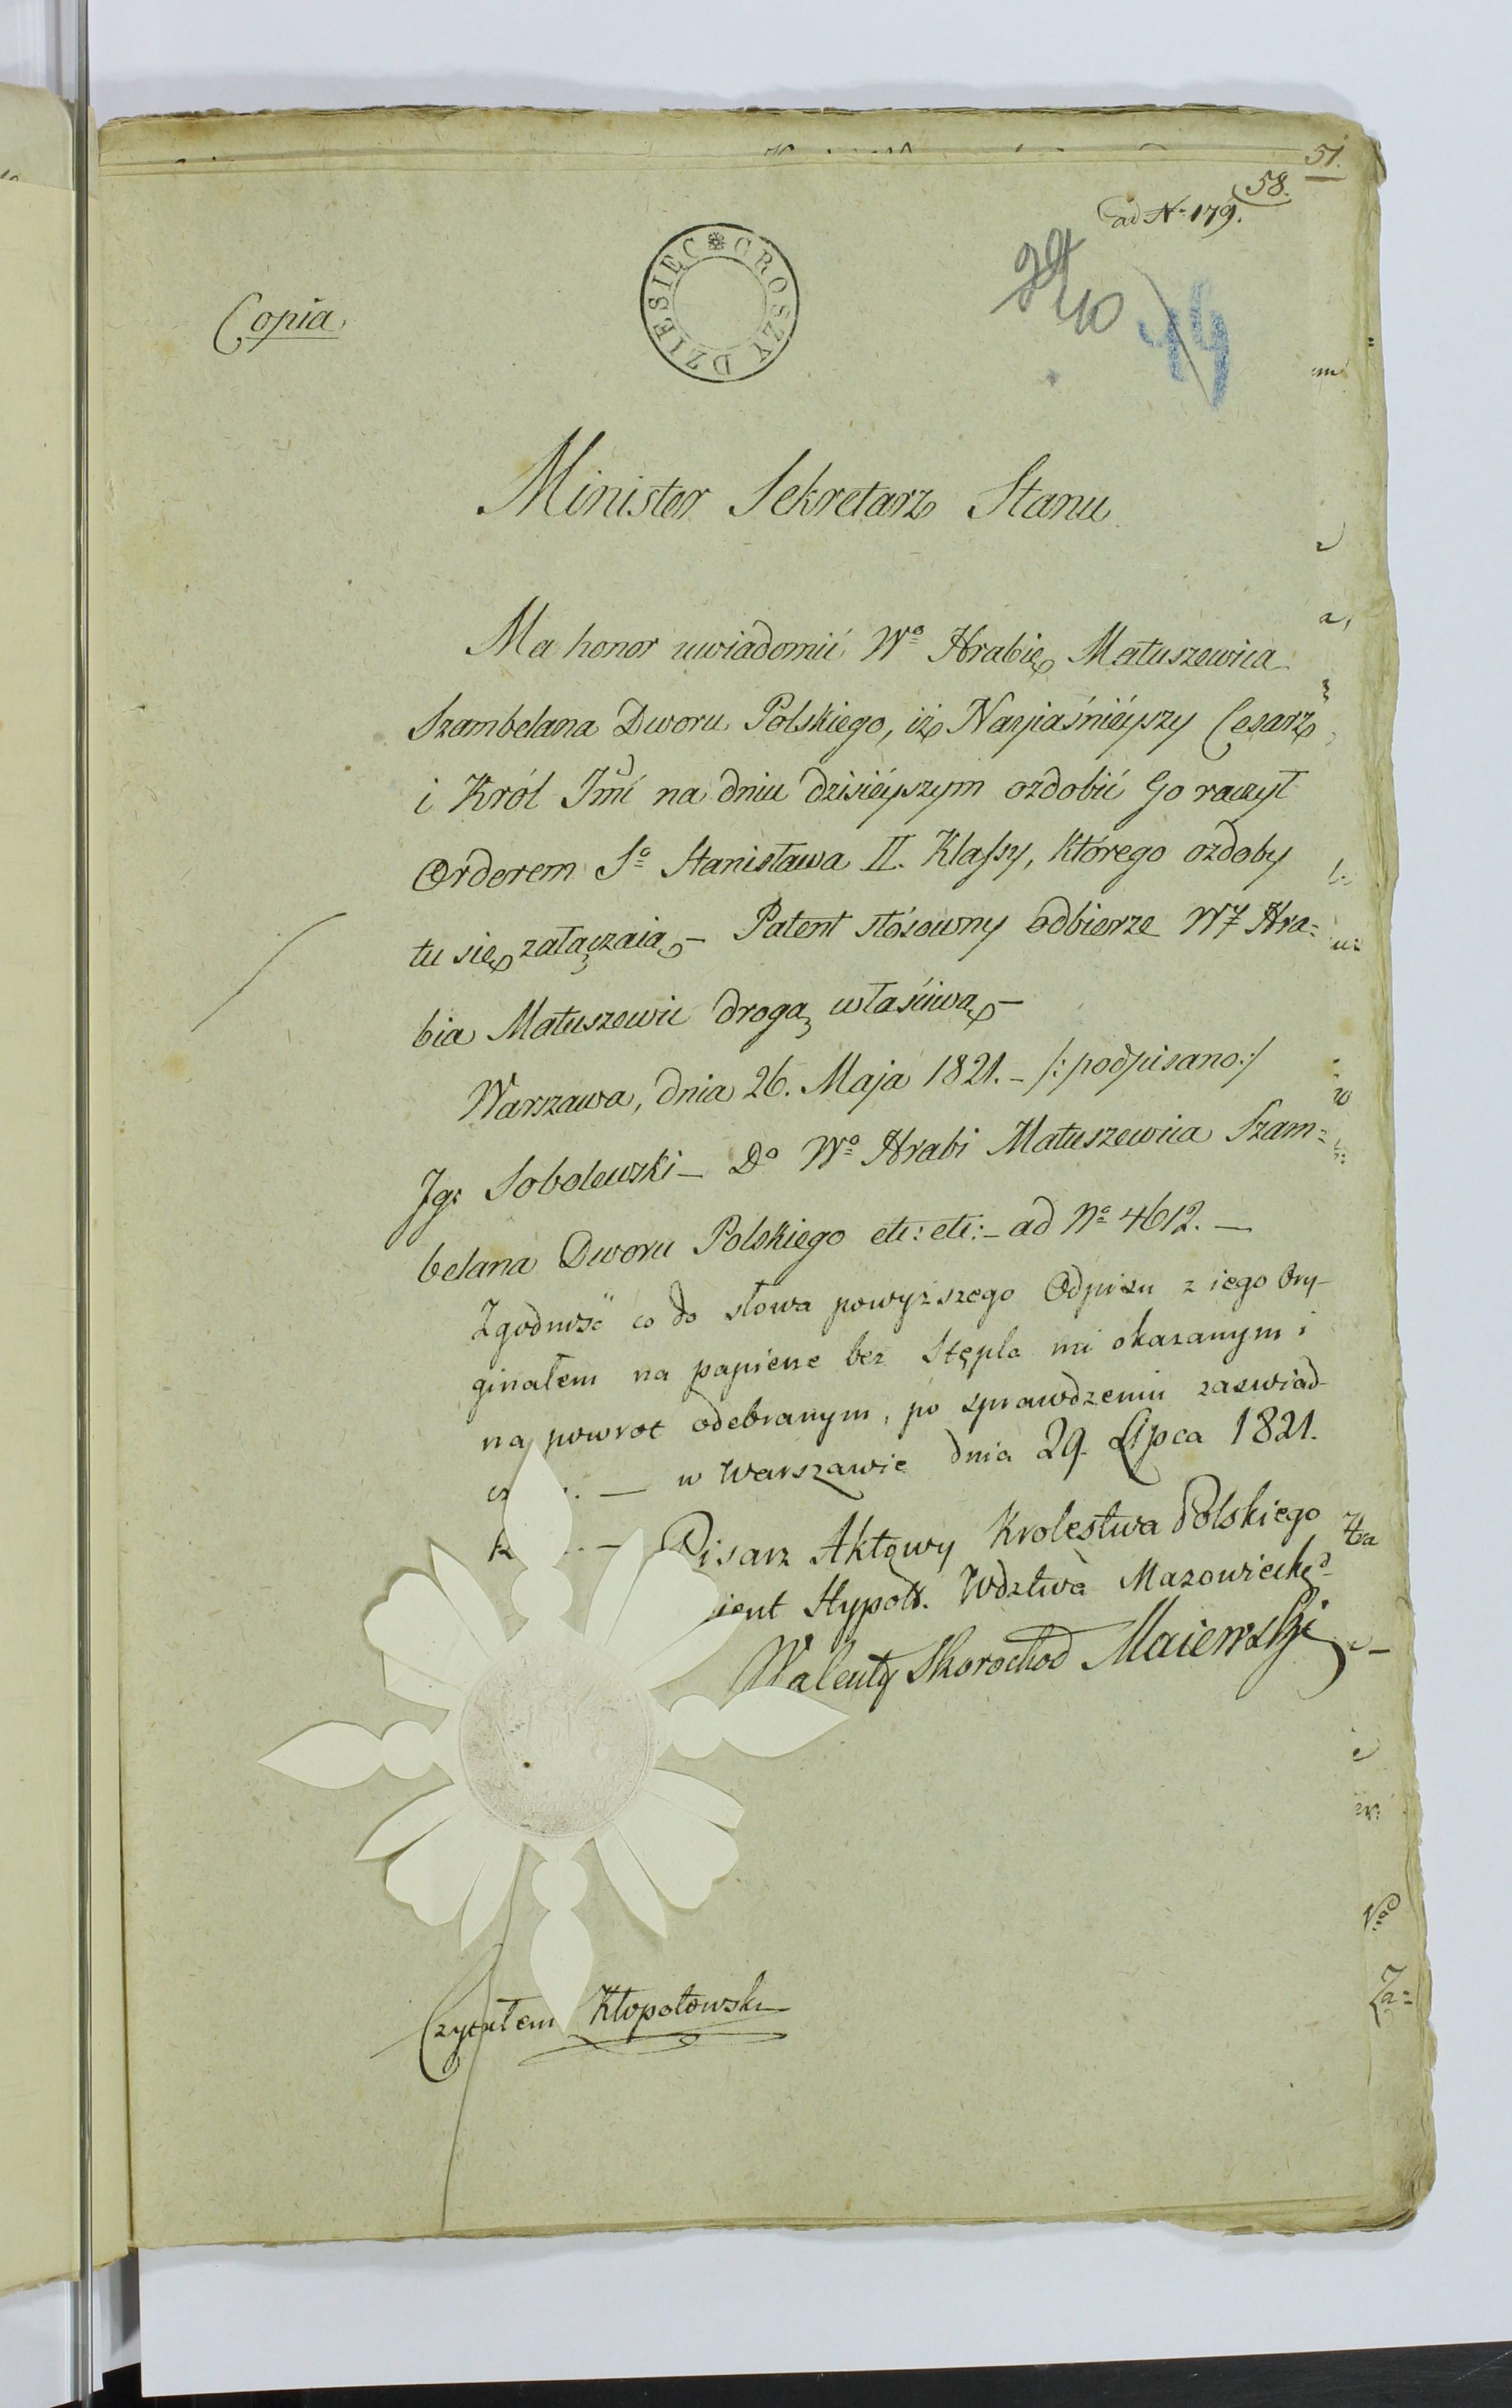 51.
58.
ad N. 179.
DZIESIĘC GROSZY
44
Copia
Minister Sekretarz Stanu
Ma honor uwiadomić Wº Hrabię Matuszewica
Szambelana Dworu Polskiego, iż Nayjaśnieyszy Cesarz
i Król Jmć na dniu dzisieyszym ozdobić Go raczył
Orderem Sº Stanisława II. Klassy, którego ozdoby
tu się załączaią – Patent stósowny odbierze WJ Hra=
bia Matuszewic drogą właściwą –
Warszawa, dnia 26. Maja 1821. – /:podpisano:/
Ig: Sobolewski – Do Wº Hrabi Matuszewica Szam=
belana Dworu Polskiego etc: etc: – ad Nº 4612. –
Zgodność co do słowa powyższego Odpisu z iego Ory-
ginałem na papierze bez Stępla mi okazanym i
na powrot odebranym, po sprawdzeniu zaswiad-
– w Warszawie dnia 29. Lipca 1821.
Pisarz Aktowy Krolestwa Polskiego
Hypot. Wdztwa Mazowieckº
Walenty Skorochod Maiewski
Czytałem Kłopotowski